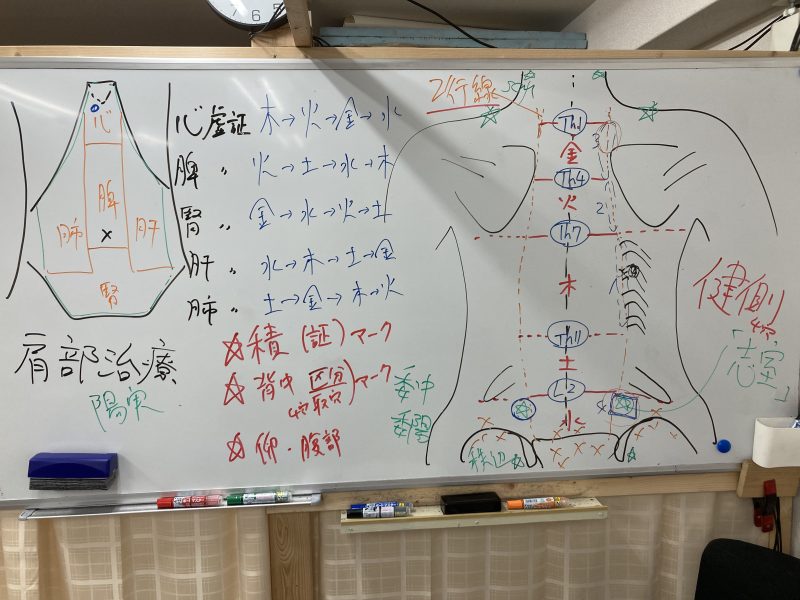 心
脾
肺
肝
腎
心虚証 木→火→金→水
脾 〃 火→土→水→木
腎 〃 金→水→火→土
肝 〃 水→木→土→金
肺 〃 土→金→木→火
肩部治療
陽実
☆積(証)マーク
☆背中 区分 マーク
4穴取穴
☆仰・腹部
2行線
Th1
金
3
Th4
火
2
Th7
木
1
Th11
土
L2
4
水
委中
委陽
秩辺
健側
4穴
「志室」